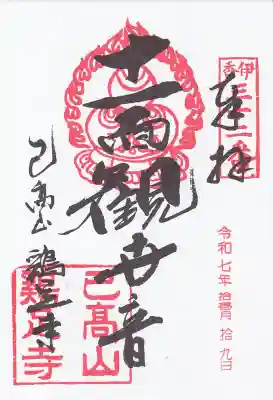 伊香
奉拝
令和七年 拾壱月 拾九日
十一面観世音
己高山 鶏足寺
己高山
鶏足寺